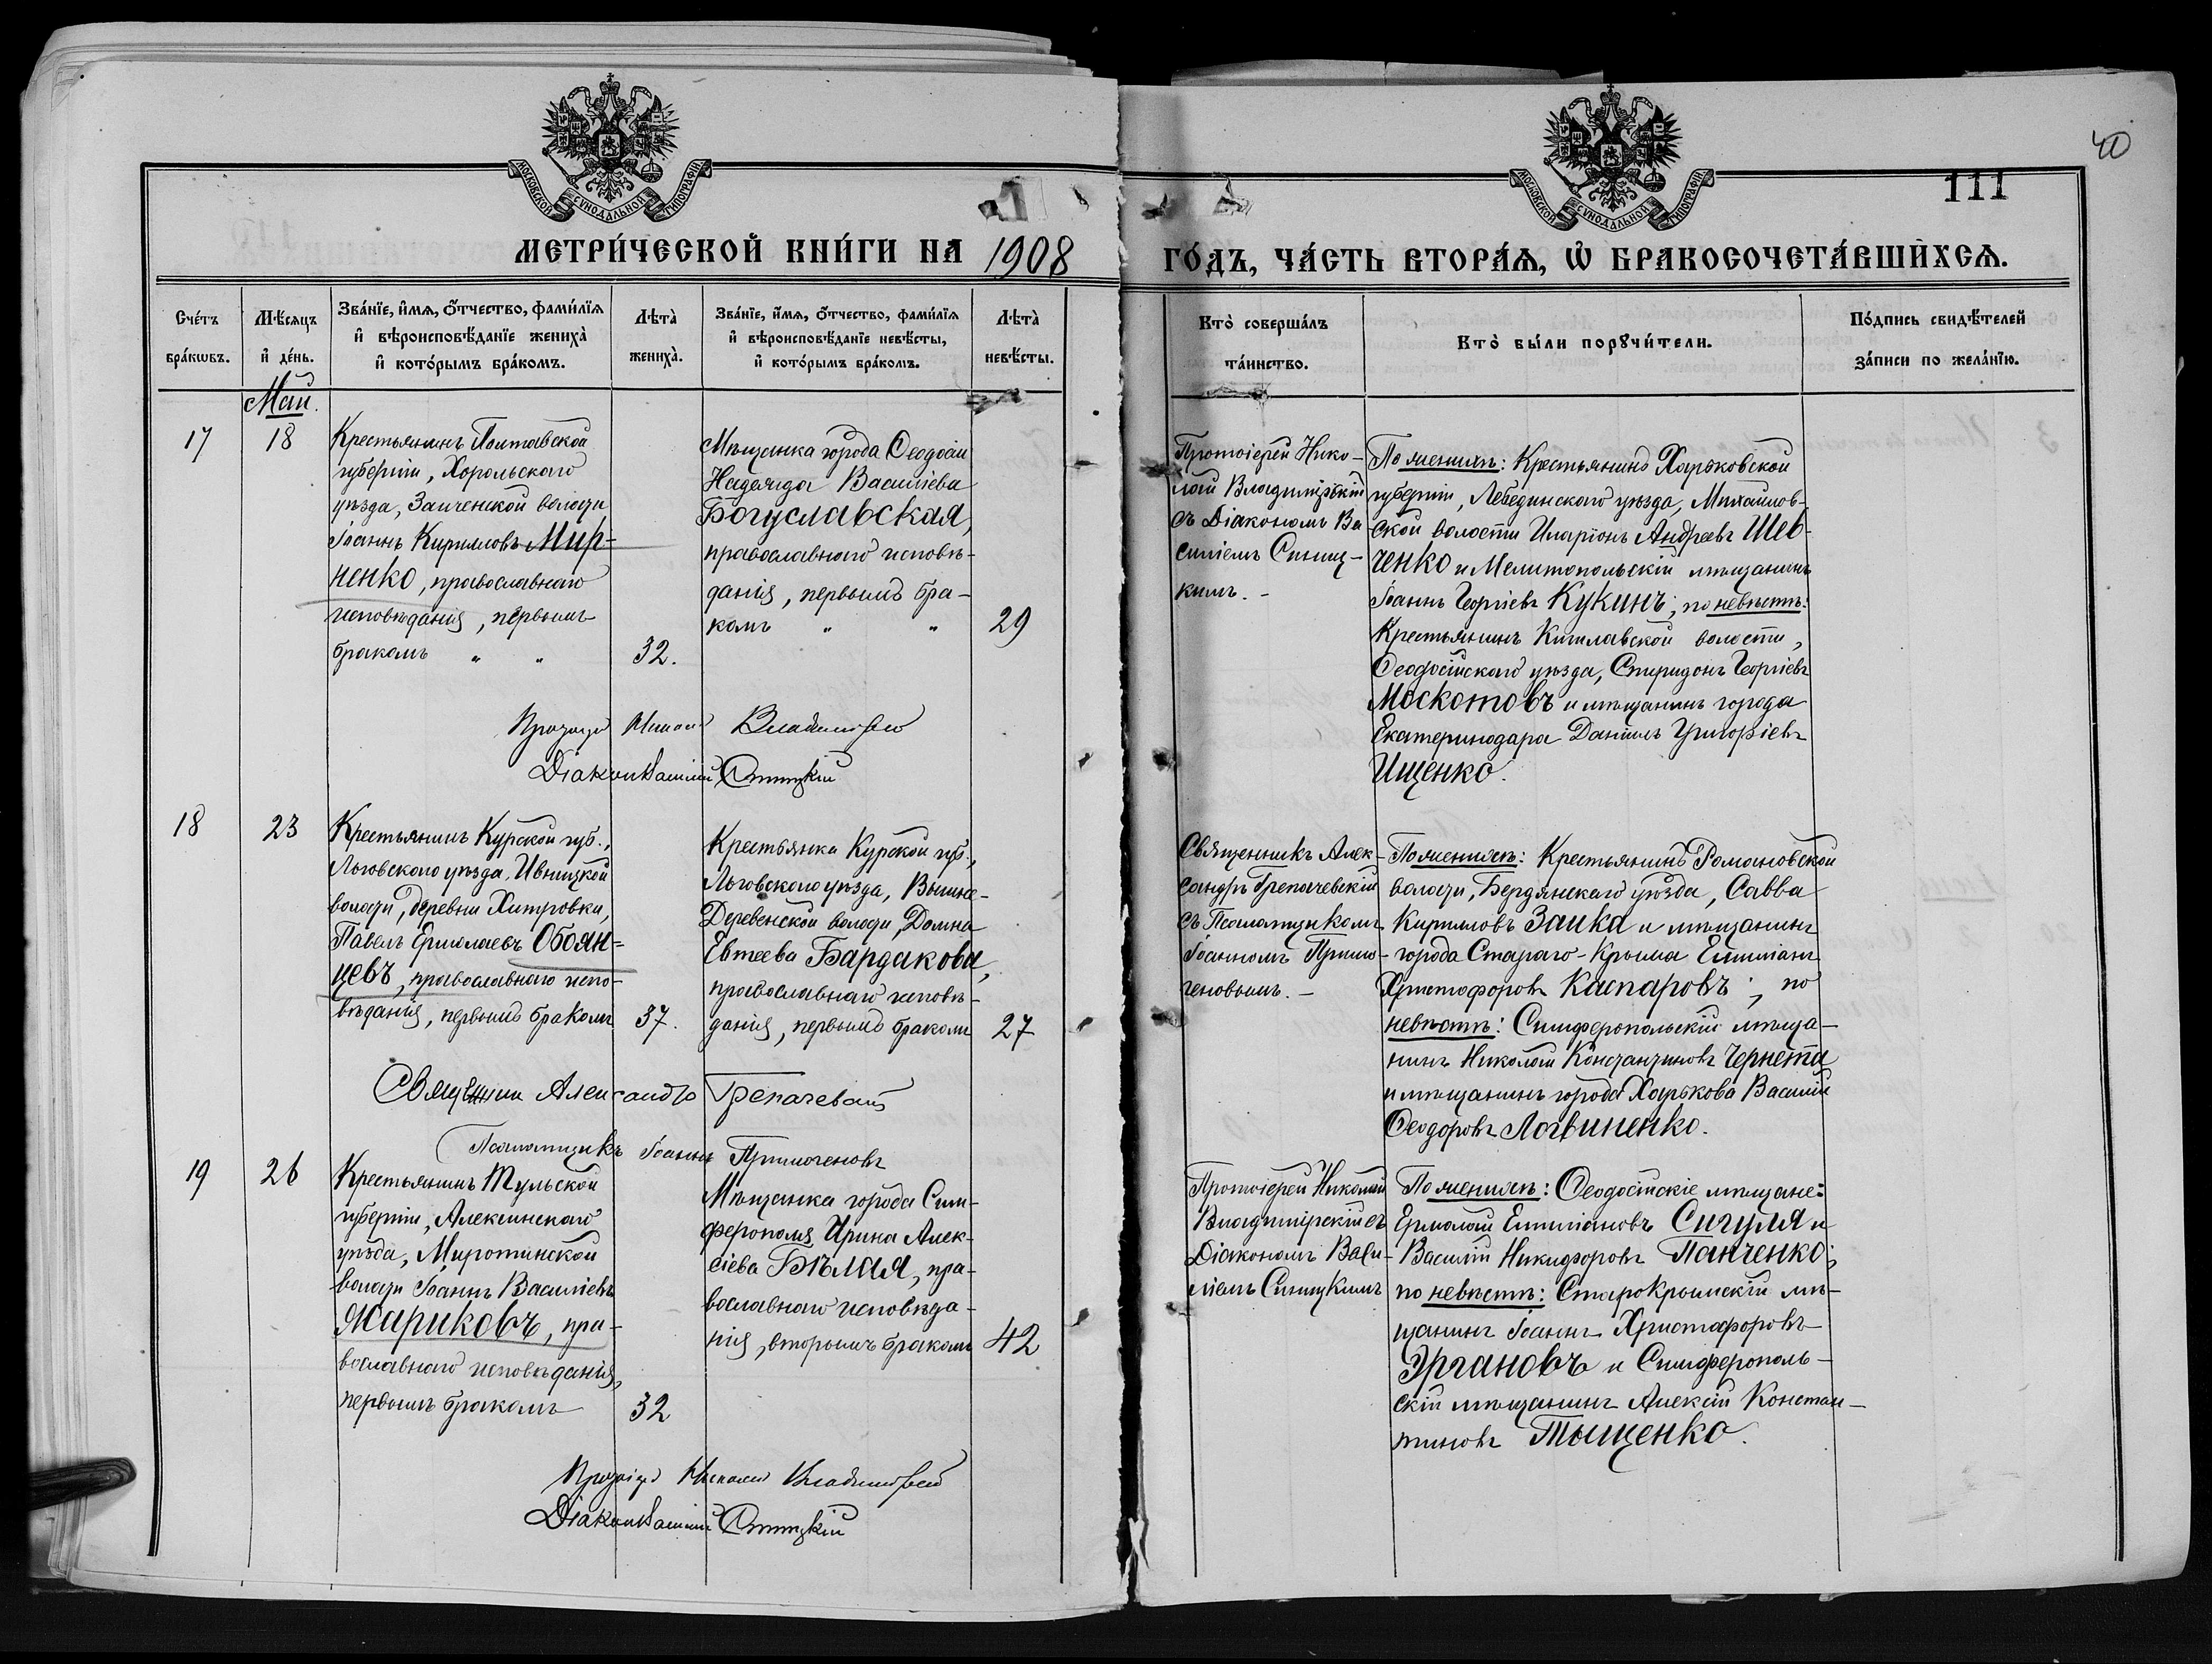 40
111
МОСКОВСКОЙ СѴНОДАЛЬНОЙ ТИПОГРАФІИ
МОСКОВСКОЙ СѴНОДАЛЬНОЙ ТИПОГРАФІИ
МЕТРИ́ЧЕСКОЙ КНИ́ГИ НА 1908 ГО́ДЪ, ЧА́СТЬ ВТОРА́Я, Ѡ БРАКОСОЧЕТА́ВШИХСЯ.
Сче́тъ
бра́кѡвъ.
Мѣ́сяцъ
и де́нь.
Зва́нїе, и́мя, ѻ́тчество, фами́лїя
и вѣроисповѣ́данїе жениха̀
и кото́рымъ бра́комъ.
Лѣта̀
жениха̀.
Зва́нїе, и́мя, ѻ́тчество, фами́лїя
и вѣроисповѣ́данїе невѣ́сты,
и кото́рымъ бра́комъ.
Лѣта̀
невѣ́сты.
Кто̀ соверша́лъ
та́инство.
Кто̀ бы́ли порꙋчи́тели.
По́дпись свидѣ́телей
за́писи по жела́нїю.
Май.
17
18
Крестьянинъ Полтавской
губерніи, Хорольскаго
уѣзда, Заиченской волости
Іоаннъ Кирилловъ Мир-
ненко, православнаго
исповѣданія, первымъ
бракомъ " "
32.
Мѣщанка города Ѳеодосіи
Надежда Василіева
Богуславская,
православнаго исповѣ-
данія, первымъ бра-
комъ " "
29
Протоіерей Нико-
лай Владимірскій
съ Діакономъ Ва
силіемъ Синиц-
кимъ. -
По женихѣ: Крестьянинъ Харьковской
губерніи, Лебединскаго уѣзда, Михайлов-
ской волости Иларіонъ Андреевъ Шев-
ченко и Мелитопольскій мѣщанинъ
Іоаннъ Георгіевъ Кукинъ; по невѣстѣ:
Крестьянинъ Кишлавской волости,
Ѳеодосійскаго уѣзда, Спиридонъ Георгіевъ
Москотовъ и мѣщанинъ города
Екатеринодара Даніилъ Григоріевъ
Ищенко.
Протоіерей Николай Владимірскій
Діаконъ Василій Синицкій
18
23
Крестьянинъ Курской губ.,
Льговскаго уѣзда, Ивницкой
волости, деревни Хитровки,
Павелъ Ермолаевъ Обоян-
цевъ, православнаго испо-
вѣданія, первымъ бракомъ
37.
Крестьянка Курской губ.,
Льговскаго уѣзда, Вышне-
Деревенской волости, Домна
Евтеева Бардакова,
православнаго исповѣ-
данія, первымъ бракомъ
27
Священникъ Алек-
сандръ Грепачевскій
съ Псаломщикомъ
Іоанномъ Примо-
геновымъ. -
По женихѣ: Крестьянинъ Романовской
волости, Бердянскаго уѣзда, Савва
Кирилловъ Заика и мѣщанинъ
города Стараго-Крыма Емиліанъ
Христофоровъ Каспаровъ; по
невѣстѣ: Симферопольскій мѣща-
нинъ Николай Константиновъ Чернета
и мѣщанинъ города Харькова Василій
Ѳеодоровъ Логвиненко.
Священникъ Александръ Грепачевскій
Псаломщикъ Іоаннъ Примогеновъ
19
26
Крестьянинъ Тульской
губерніи, Алексинскаго
уѣзда, Миротинской
волости Іоаннъ Василіевъ
Жариковъ, пра-
вославнаго исповѣданія,
первымъ бракомъ
32
Мѣщанка города Сим-
ферополя Ирина Алек-
сіева Бѣлая, пра-
вославнаго исповѣда-
нія, вторымъ бракомъ
42
Протоіерей Николай
Владимірскій съ
Діакономъ Васи-
ліемъ Синицкимъ
По женихѣ: Ѳеодосійскіе мѣщане:
Ермолай Емиліановъ Сигуля и
Василій Никифоровъ Панченко;
по невѣстѣ: Старокрымскій мѣ-
щанинъ Іоаннъ Христофоровъ
Эргановъ и Симферополь-
скій мѣщанинъ Алексій Констан-
тиновъ Тыщенко.
Протоіерей Николай Владимірскій
Діаконъ Василій Синицкій